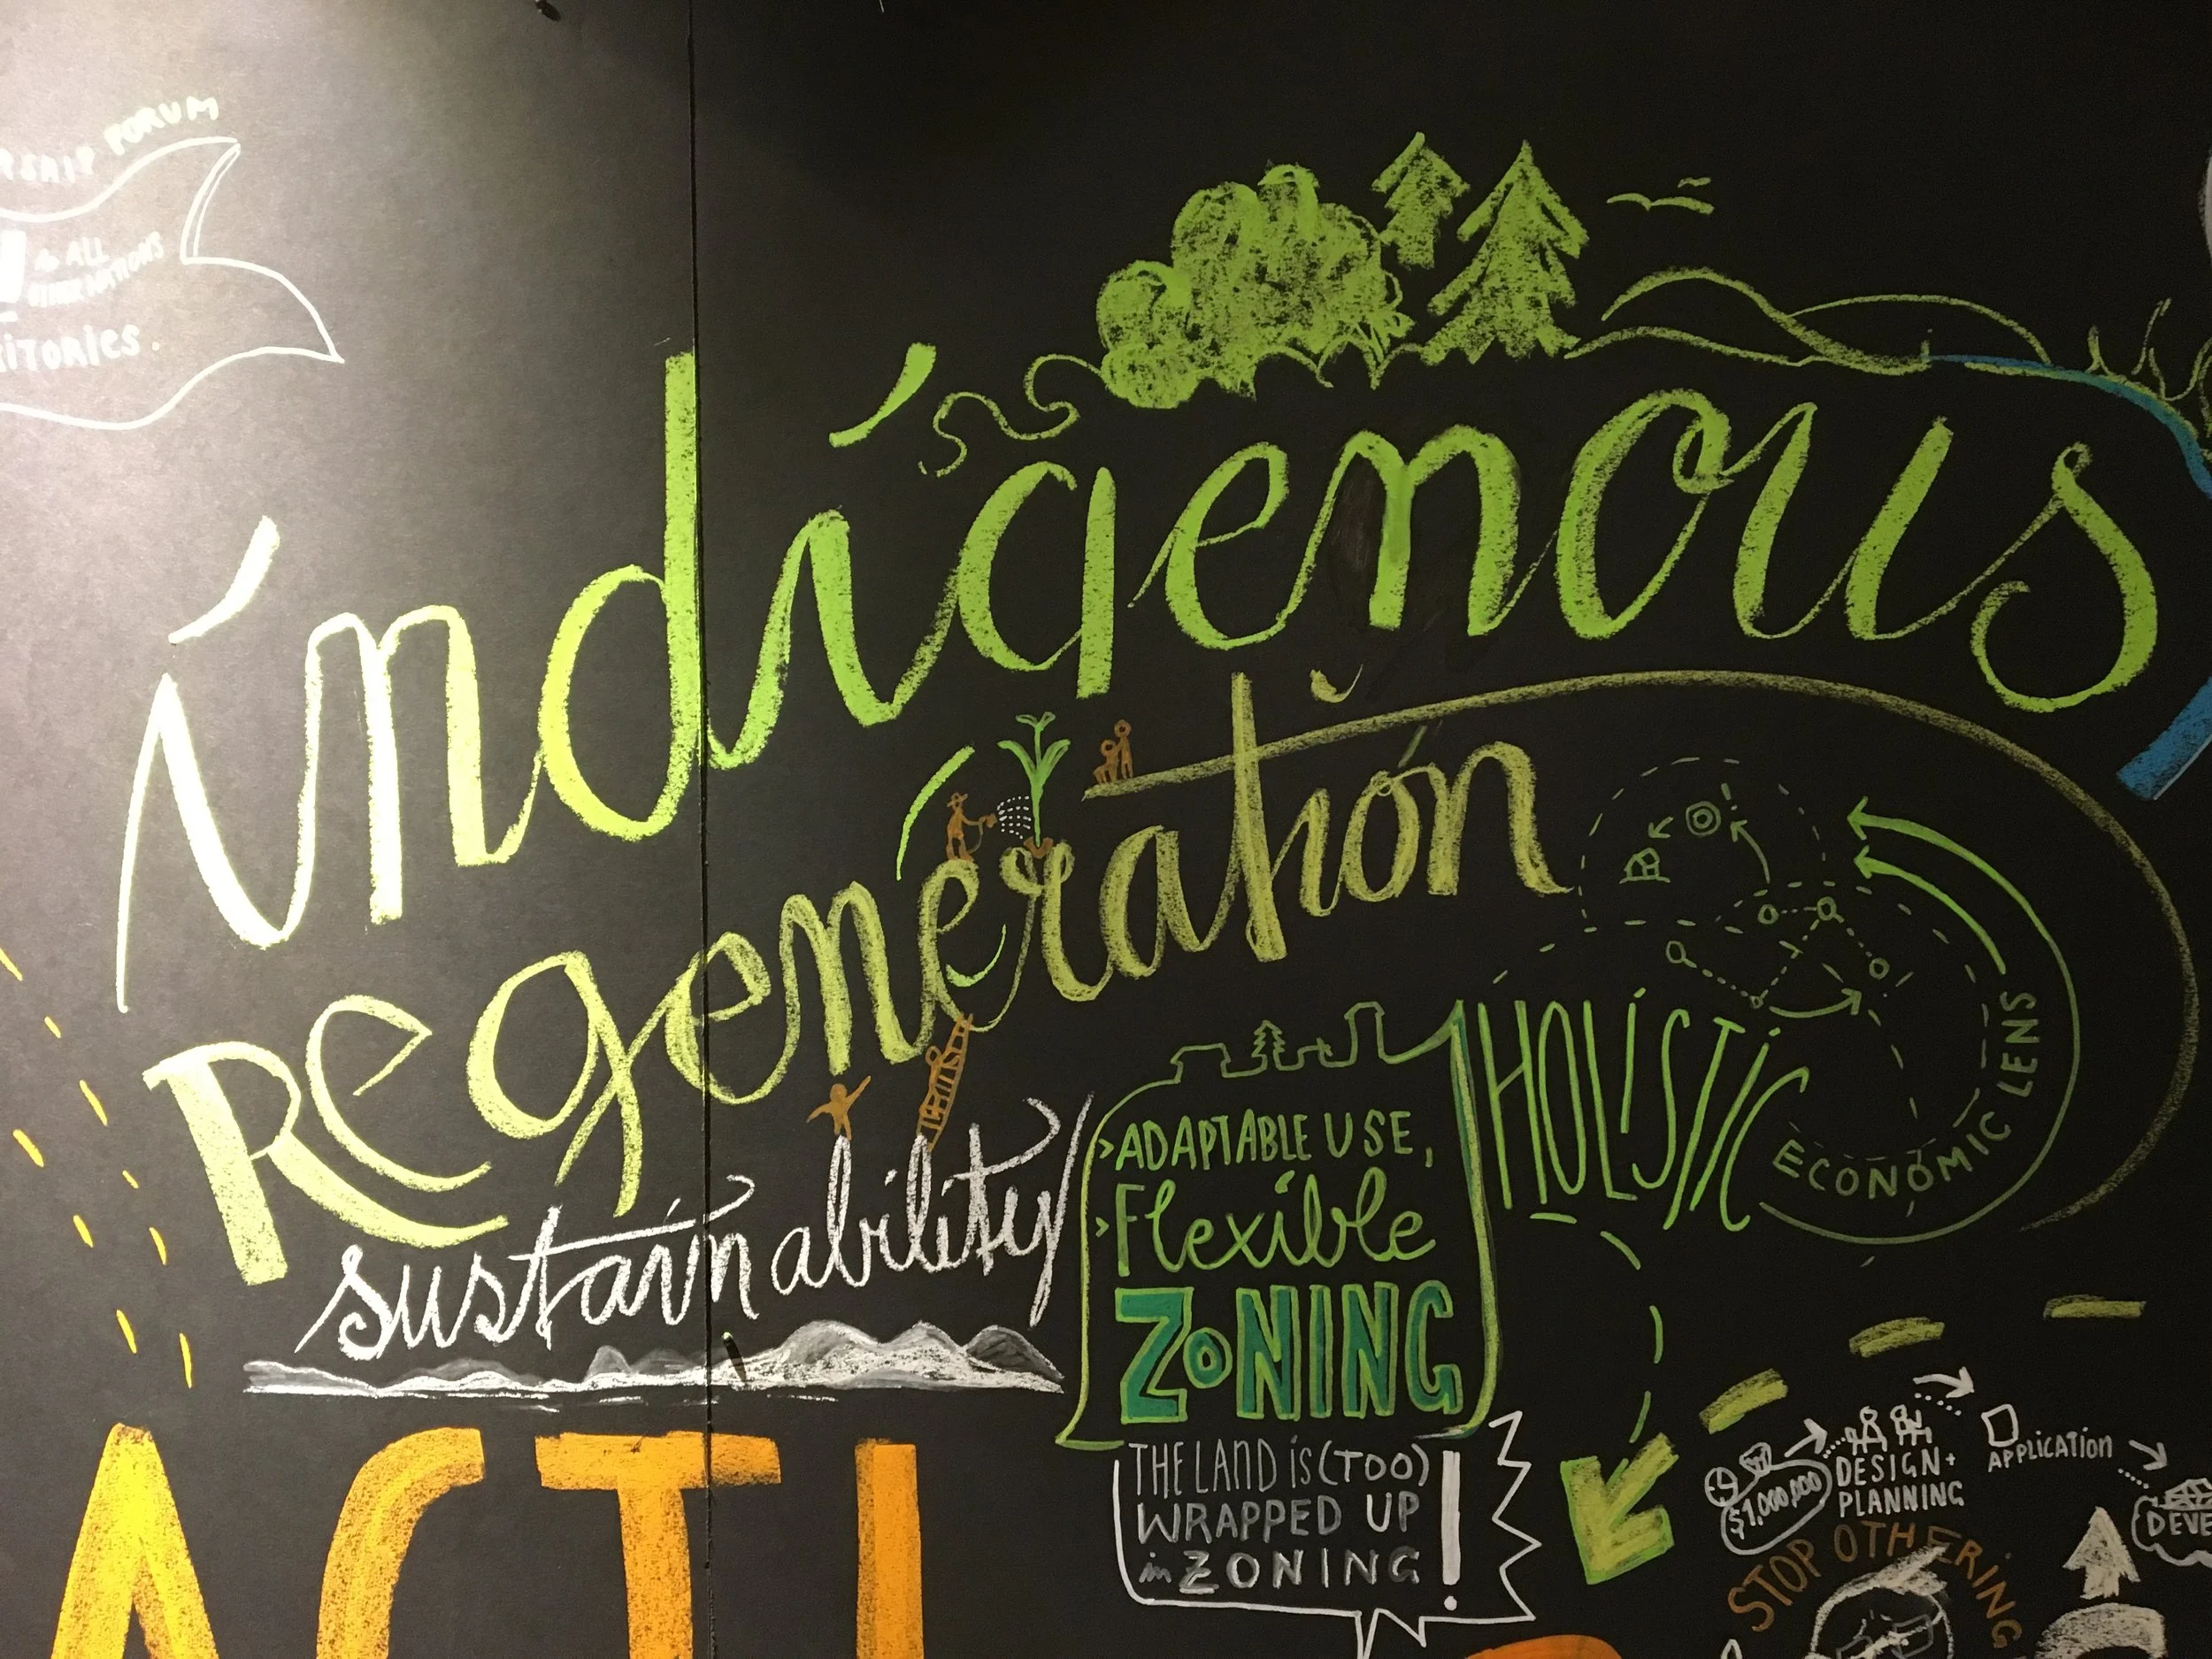 FORUM
& ALL
indigenous
Regeneration
sustainability
> ADAPTABLE USE,
> Flexible
ZONING
HOLISTIC
ECONOMIC LENS
THE LAND is (TOO)
WRAPPED UP
in ZONING !
$1,000,000
DESIGN +
PLANNING
APPLICATION
DEVE
STOP OTHERING
ACTI